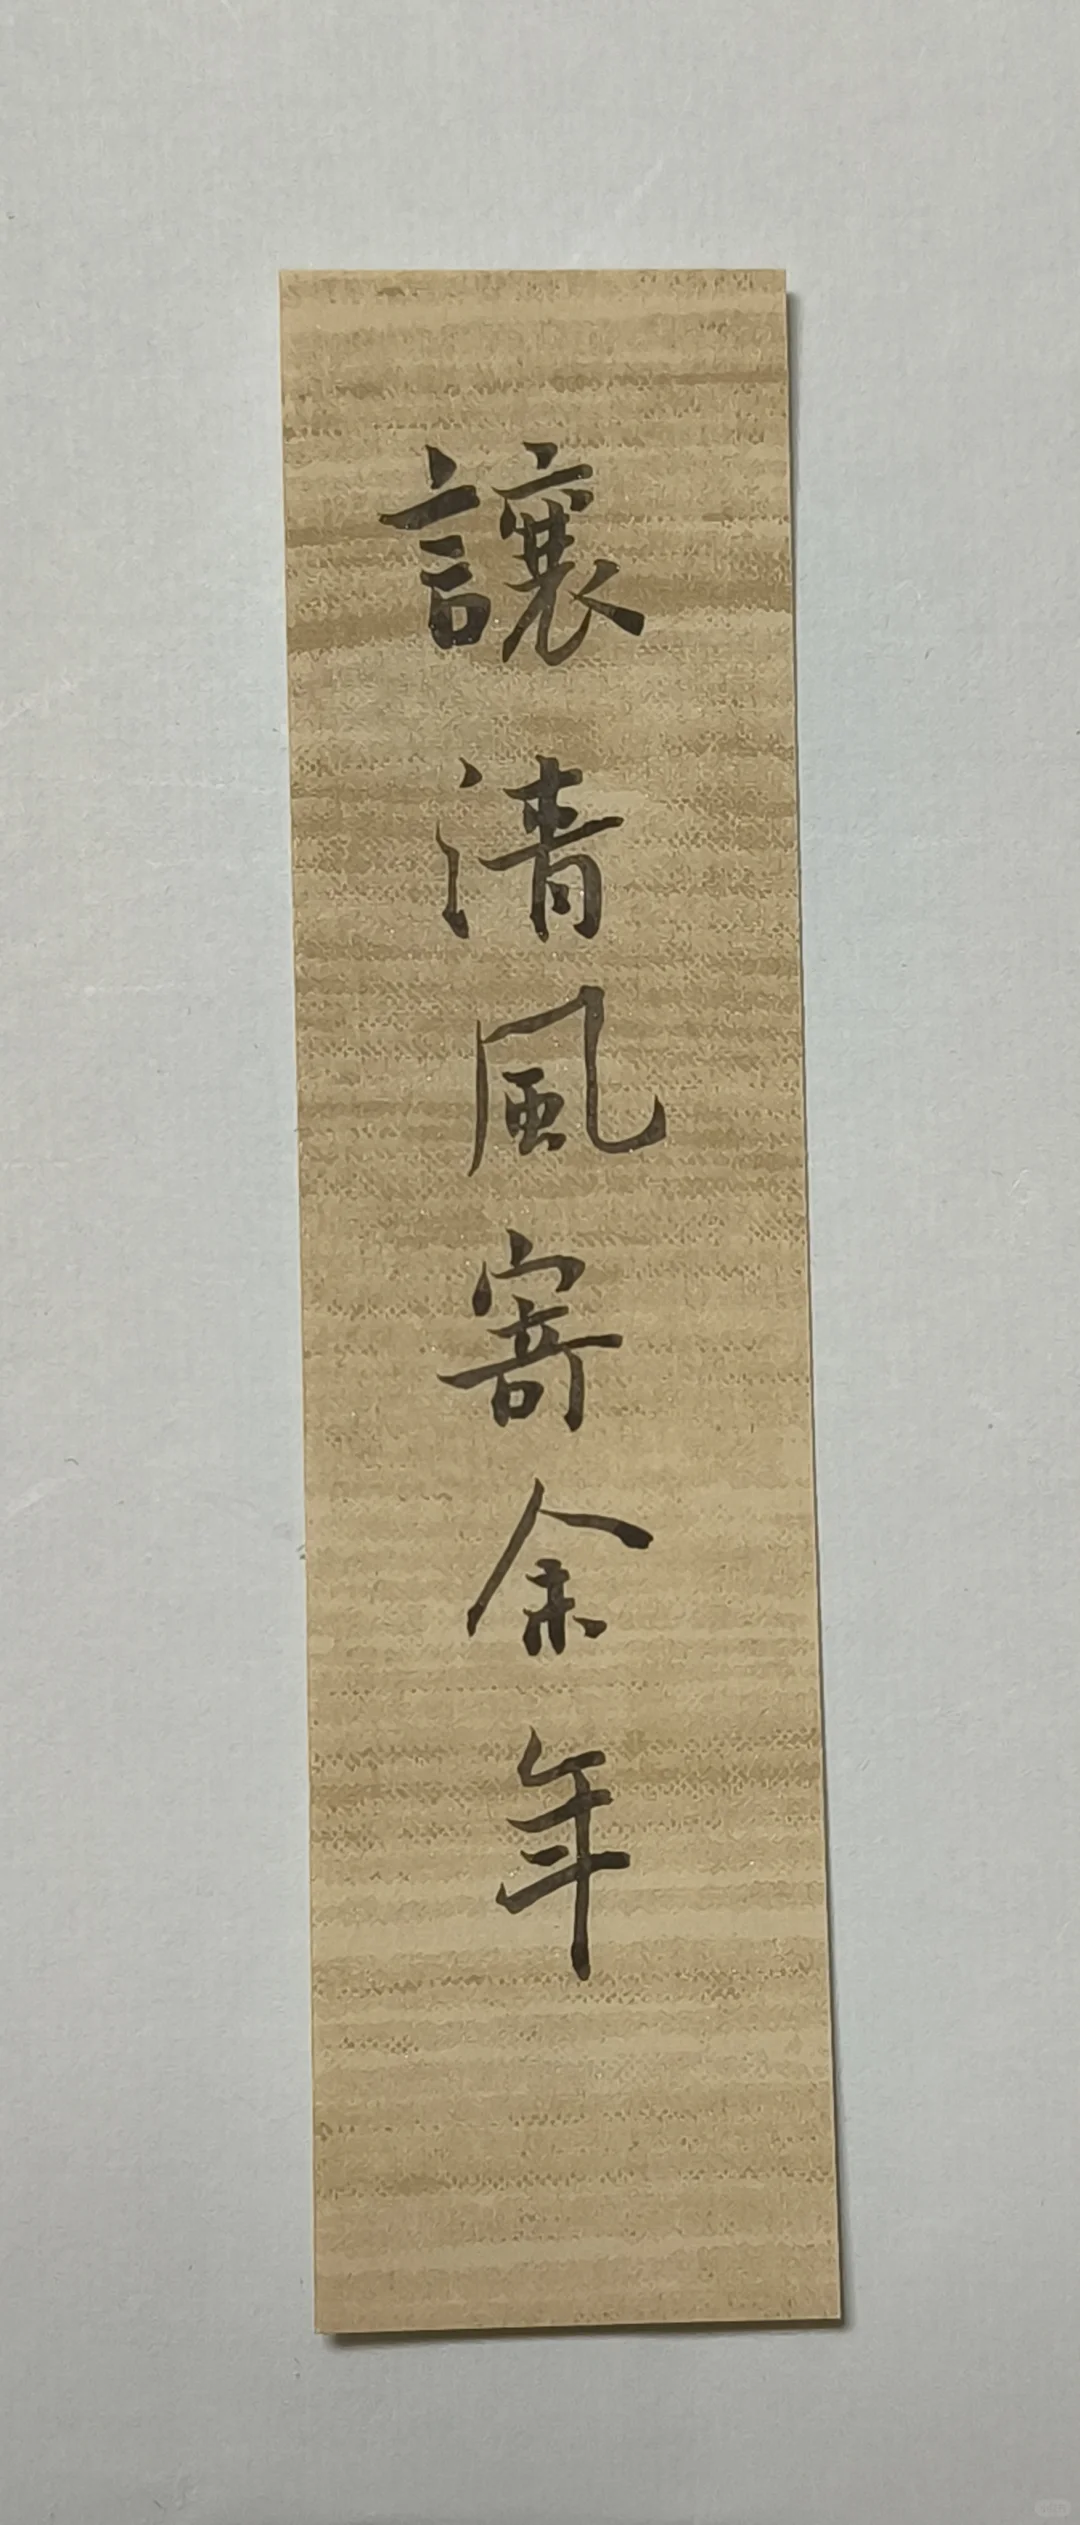 讓清風寄余年